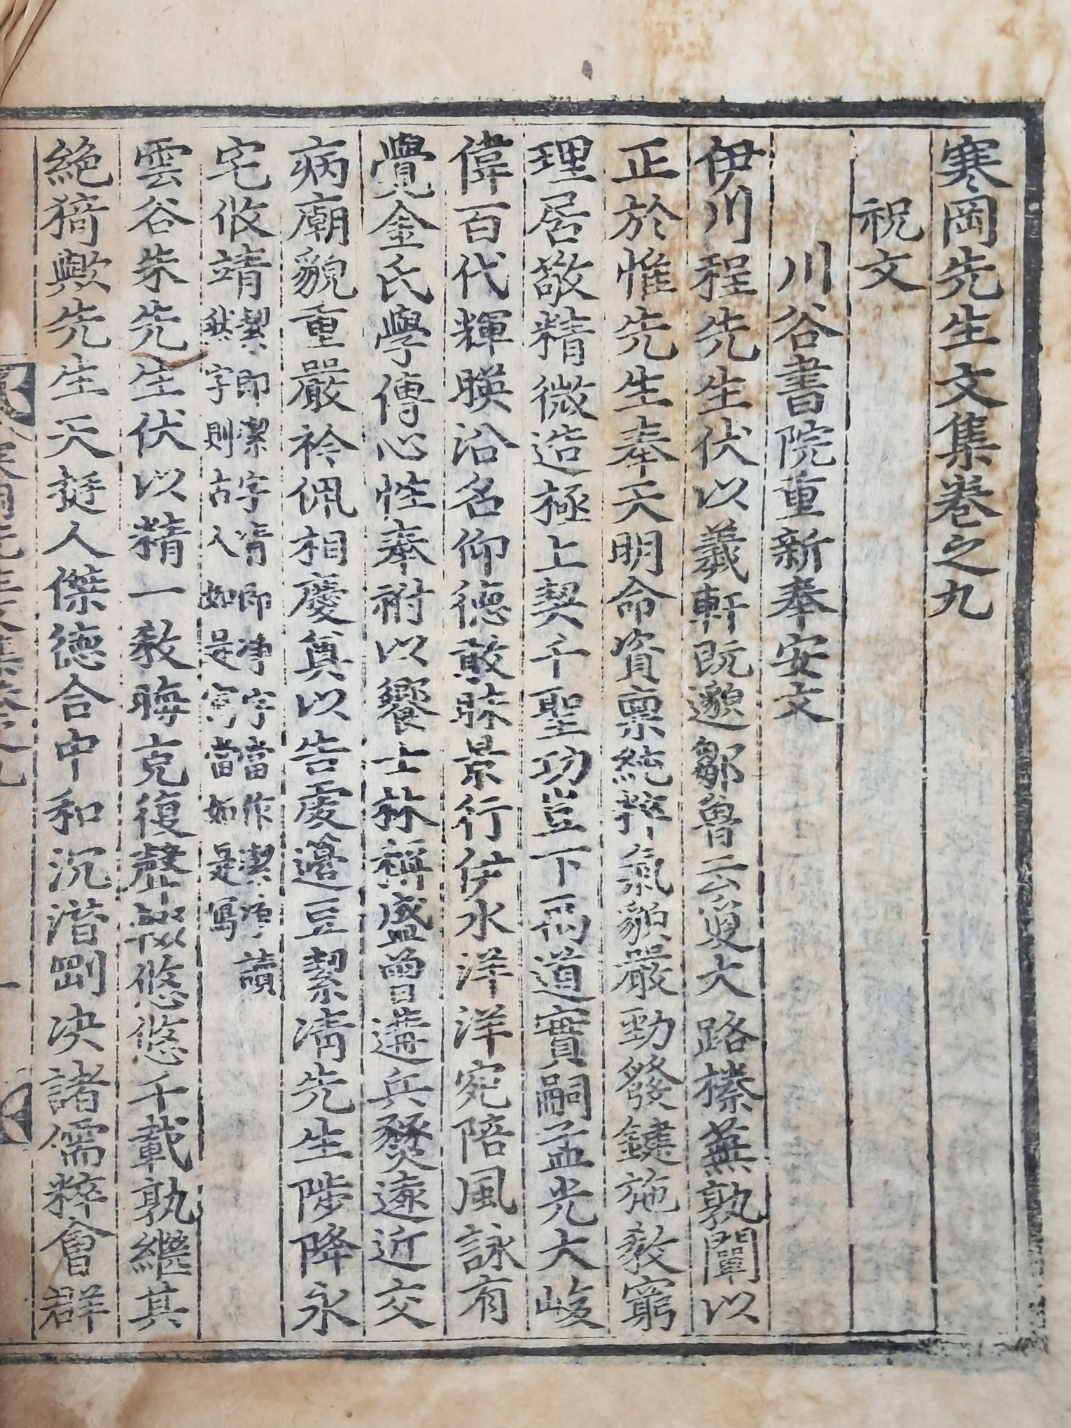 寒岡先生文集卷之九
祝文
川谷書院重新奉安文
伊川程先生伏以羲軒旣邈鄒魯云亡大路榛蕪孰闡以
正於惟先生奉天明命資稟純粹氣貌嚴勁發鍵施敎窮
理居敬精微造極上契千聖功豈下禹道實嗣孟光大峻
偉百代輝暎沿名仰德敢昧景行伊水洋洋宛陪風詠有
覺金氏學傳心性奉祔以饗士林稱盛曾遘兵燹遠近交
病廟貌重嚴衿佩相慶奠以告虔籩豆絜淸先生陟降永
宅攸靖絜卽潔字淸卽淨字當作潔淨讀然字則古人如是寫當如是寫
雲谷朱先生伏以精一敎晦克復聲悠悠千載孰繼其
絶猗歟先生天挺人傑德合中和沉潛剛决諸儒粹會群